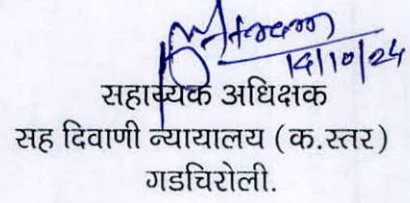 14/10/24
सहाय्यक अधिक्षक
सह दिवाणी न्यायालय (क.स्तर)
गडचिरोली.